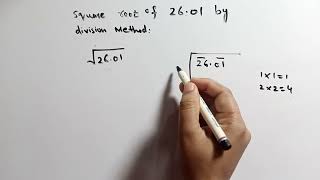 Square root of 26.01 by
division Method:
√26.01
26.01
1×1=1
2×2=4